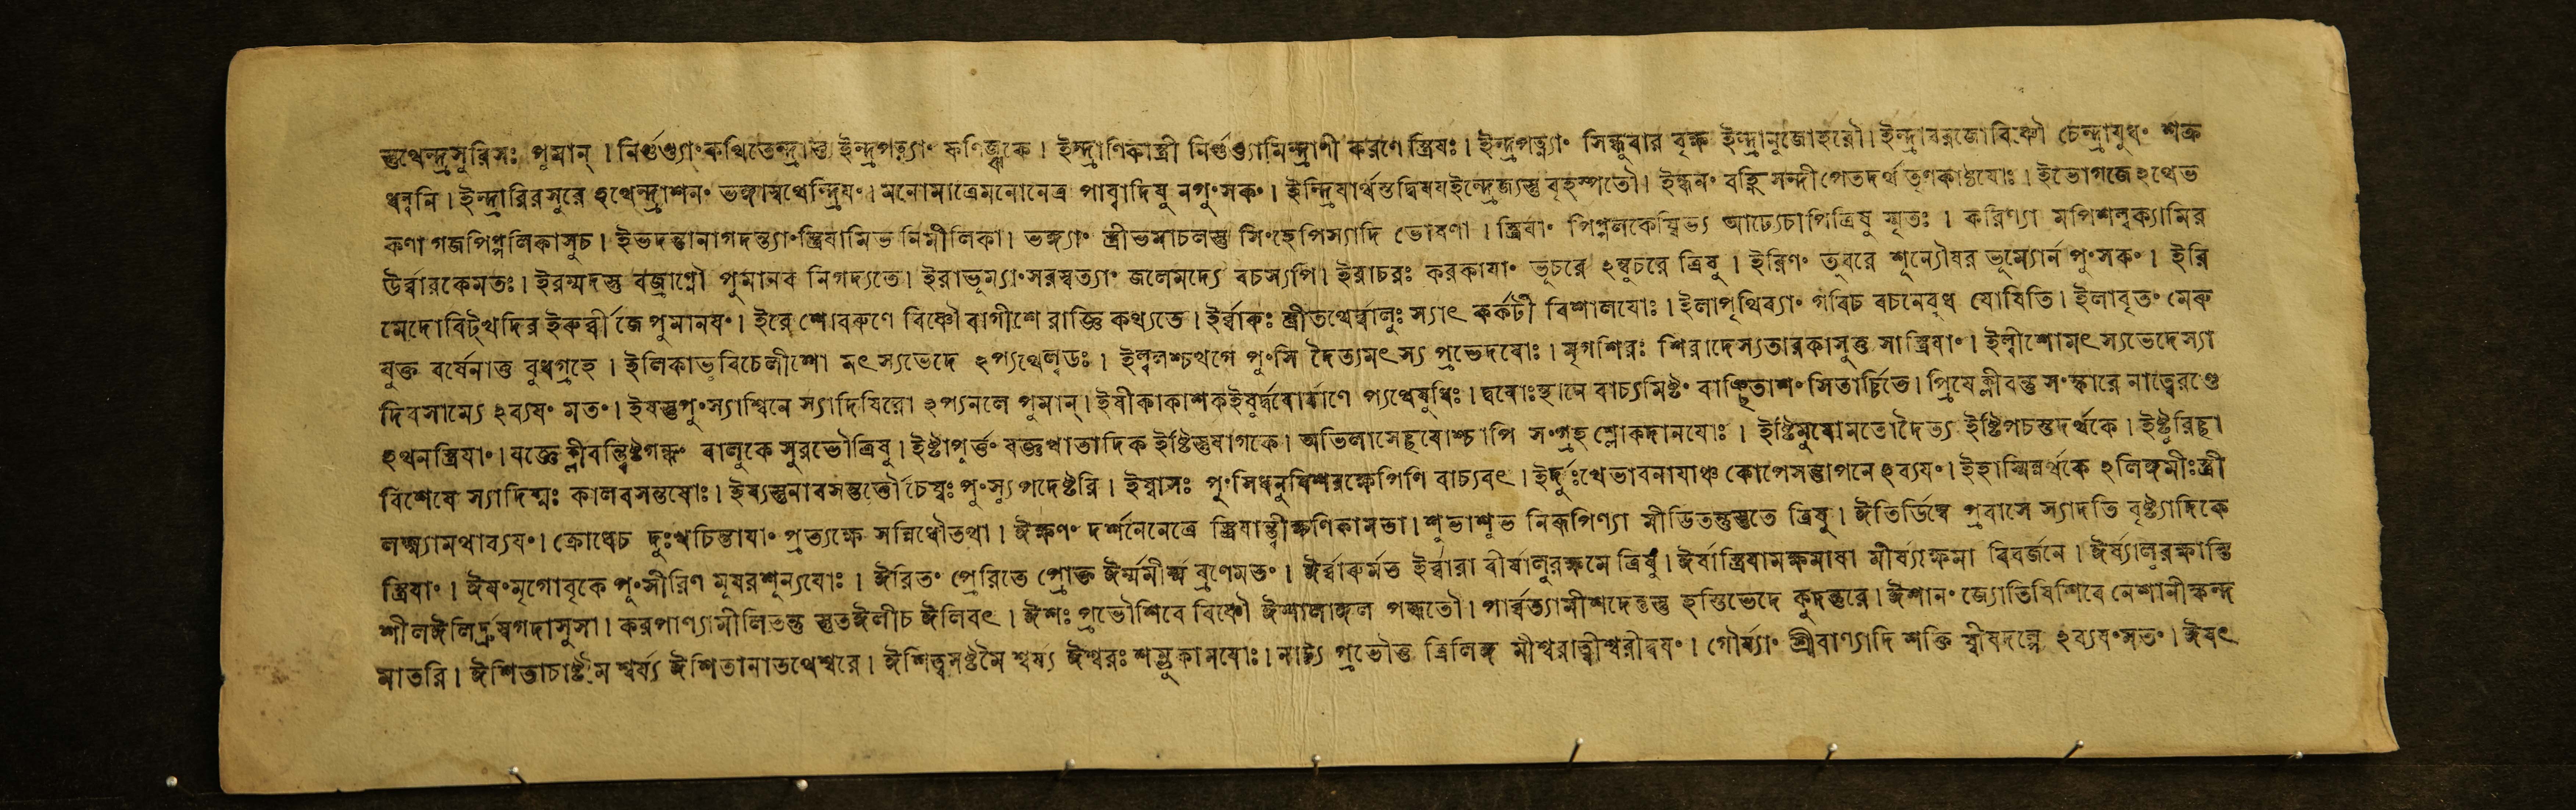 স্তুথেন্দ্রসুরিসঃ পুমান্ । নির্গুণ্ড্যাং কথিতেন্দ্রাতু ইন্দ্রপত্ন্যাং ফণিজ্ঝকে । ইন্দ্রাণিকাস্ত্রী নির্গুণ্ড্যামিন্দ্রাণী করণে স্ত্রিয়ঃ । ইন্দ্রপত্ন্যাং সিন্ধুবার বৃক্ষ ইন্দ্রানুজোহরৌ । ইন্দ্রাবরজোবিষ্ণৌ চেন্দ্রাযুধং শক্র
ধন্বনি । ইন্দ্রারিরসুরে ঽথেন্দ্রাশনং ভঙ্গাস্বথেন্দ্রিযং । মনোমাত্রেমনোনেত্র পায্বাদিষু নপুংসকং । ইন্দ্রিযার্থস্তদ্বিষযইন্দ্রেজ্যস্তু বৃহস্পতৌ । ইন্ধনং বহ্নি সন্দীপেতদর্থ তৃণকাষ্ঠযোঃ । ইভোগজেঽথেভ
কণা গজপিপ্পলিকাসুচ । ইভদন্তানাগদন্ত্যাংস্ত্রিযামিভ নিমীলিকা । ভঙ্গ্যাং স্ত্রীভমাচলস্তু সিংহেপিস্যাদি ভোষণা । স্ত্রিযাং পিপ্পলকেষ্বিভ্য আঢ্যেচাপিত্রিষু স্মৃতঃ । করিণ্যা মপিশল্লক্যামির
উর্ব্বারকেমতঃ । ইরম্মদস্তু বজ্রাগ্নৌ পুমানব নিগদ্যতে । ইরাভূম্যাংসরস্বত্যাং জলেমদ্যে বচস্যপি । ইরাচরঃ করকাযাং ভূচরে ঽম্বুচরে ত্রিষু । ইরিণং তুবরে শূন্যৌষর ভূম্যোর্ন পুংসকং । ইরি
মেদোবিট্খদির ইরুর্ব্বীজে পুমানযং । ইরে শোবরুণে বিষ্ণৌ বাগীশে রাজ্ঞি কথ্যতে । ইর্ব্বারুঃ স্ত্রীতথের্ব্বালুঃ স্যাৎ কর্কটী বিশালযোঃ । ইলাপৃথিব্যাং গবিচ বচনেবুধ যোষিতি । ইলাবৃতং মেরু
যুক্ত বর্ষেনাতু বুধগ্রহে । ইলিকাভূবিচেলীশো মৎস্যভেদে ঽপ্যথেল্বডঃ । ইল্বলশ্চথগে পুংসি দৈত্যমৎস্য প্রভেদযোঃ । মৃগশিরঃ শিরাদেস্যতারকাসুতু সাস্ত্রিযাং । ইল্লীশোমৎস্যভেদেস্যা
দিবসাম্যে ঽব্যযং মতং । ইষস্তুপুংস্যাশ্বিনে স্যাদিষিরো ঽপ্যনলে পুমান্ । ইষীকাকাশক ঽপ্যথেষুধিঃ । দ্বযোঃস্থানে বাচ্যমিষ্টং বাঞ্ছিতাশংসিতার্চ্চিতে । প্রিযেক্লীবন্তু সংস্কারে নাত্বেরণ্ডে
ঽথনস্ত্রিযাং । যজ্ঞেক্লীবন্ত্বিষ্টগন্ধং বালুকে সুরভৌত্রিষু । ইষ্টাপূর্ত্তং যজ্ঞখাতাদিক ইষ্টিস্তুযাগকে । অভিলাসেচ্ছযোশ্চাপি সংগ্রহ শ্লোকদানযোঃ । ইষ্টিমুষোমতোদৈত্য ইষ্টিপচস্তদর্থকে । ইষ্টুরিচ্ছা
বিশেষে স্যাদিষ্মঃ কালবসন্তযোঃ । ইষ্যস্তুনাবসন্তর্ত্তৌ চেষ্বঃ পুংস্যুপদেষ্টরি । ইষ্বাসঃ পুংসিধনুষি বাচ্যবৎ । ইর্দুঃখেভাবনাযাঞ্চ কোপেসন্তাপনেঽব্যযং । ইহাস্মিন্নর্থকে ঽলিঙ্গমীঃস্ত্রী
লক্ষ্ম্যামথাব্যযং । ক্রোধেচ দুঃখচিন্তাযাং প্রত্যক্ষে সন্নিধৌতথা । ঈক্ষণং দর্শনেনেত্রে স্ত্রিযান্ত্বীক্ষণিকামতা । শুভাশুভ নিরূপিণ্যা মীডিতন্তুস্তুতে ত্রিষু । ঈতির্ডিম্বে প্রবাসে স্যাদতি বৃষ্ট্যাদিকে
স্ত্রিযাং । ঈষংমৃগোবৃকে পুংসীরিণ মূষরশূন্যযোঃ । ঈরিতং প্রেরিতে প্রোক্ত ঈর্ম্মমীর্ম্ম ব্রণেমতং । ঈর্ষাস্ত্রিযামক্ষমাযা মীর্ষ্যাক্ষমা বিবর্জনে । ঈর্ষ্যালুরক্ষান্তি
শীলঈলির্দ্রুস্বগদাসুসা । করপাণ্যামীলিতন্তু স্তুতঈলীচ ঈলিবৎ । ঈশঃ প্রভৌশিবে বিষ্ণৌ পদ্ধতৌ । পার্ব্বত্যামীশদেন্তস্তু হস্তিভেদে কুদন্তরে । ঈশানং জ্যোতিষিশিবে নেশানীস্কন্দ
মাতরি । ঈশিতাচাষ্টমৈ শ্বর্য্য ঈশিতানাতথেশ্বরে । ঈশিত্বমষ্টমৈ শ্বর্য্য ঈশ্বরঃ শম্ভুকামযোঃ । নাঢ্যে প্রভৌতু ত্রিলিঙ্গ মীশ্বরাত্বীশ্বরীদ্বযং । গৌর্য্যাং শ্রীবাণ্যাদি শক্তি ষ্বীষদল্পে ঽব্যযংমতং । ঈষৎ